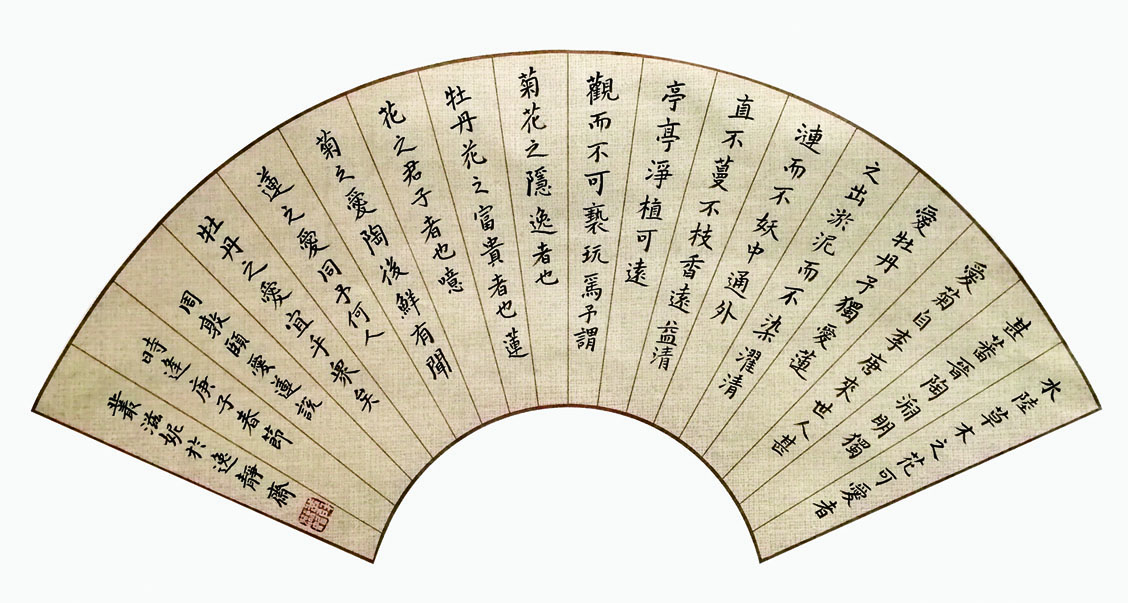 水陸草木之花可愛者
甚蕃晉陶淵明獨
愛菊自李唐來世人甚
愛牡丹予獨愛蓮
之出淤泥而不染濯清
漣而不妖中通外
直不蔓不枝香遠益清
亭亭淨植可遠
觀而不可褻玩焉予謂
菊花之隱逸者也
牡丹花之富貴者也蓮
花之君子者也噫
菊之愛陶後鮮有聞
蓮之愛同予何人
牡丹之愛宜乎衆矣
周敦頤愛蓮說
時逢庚子春節
叢滋妮於逸靜齋